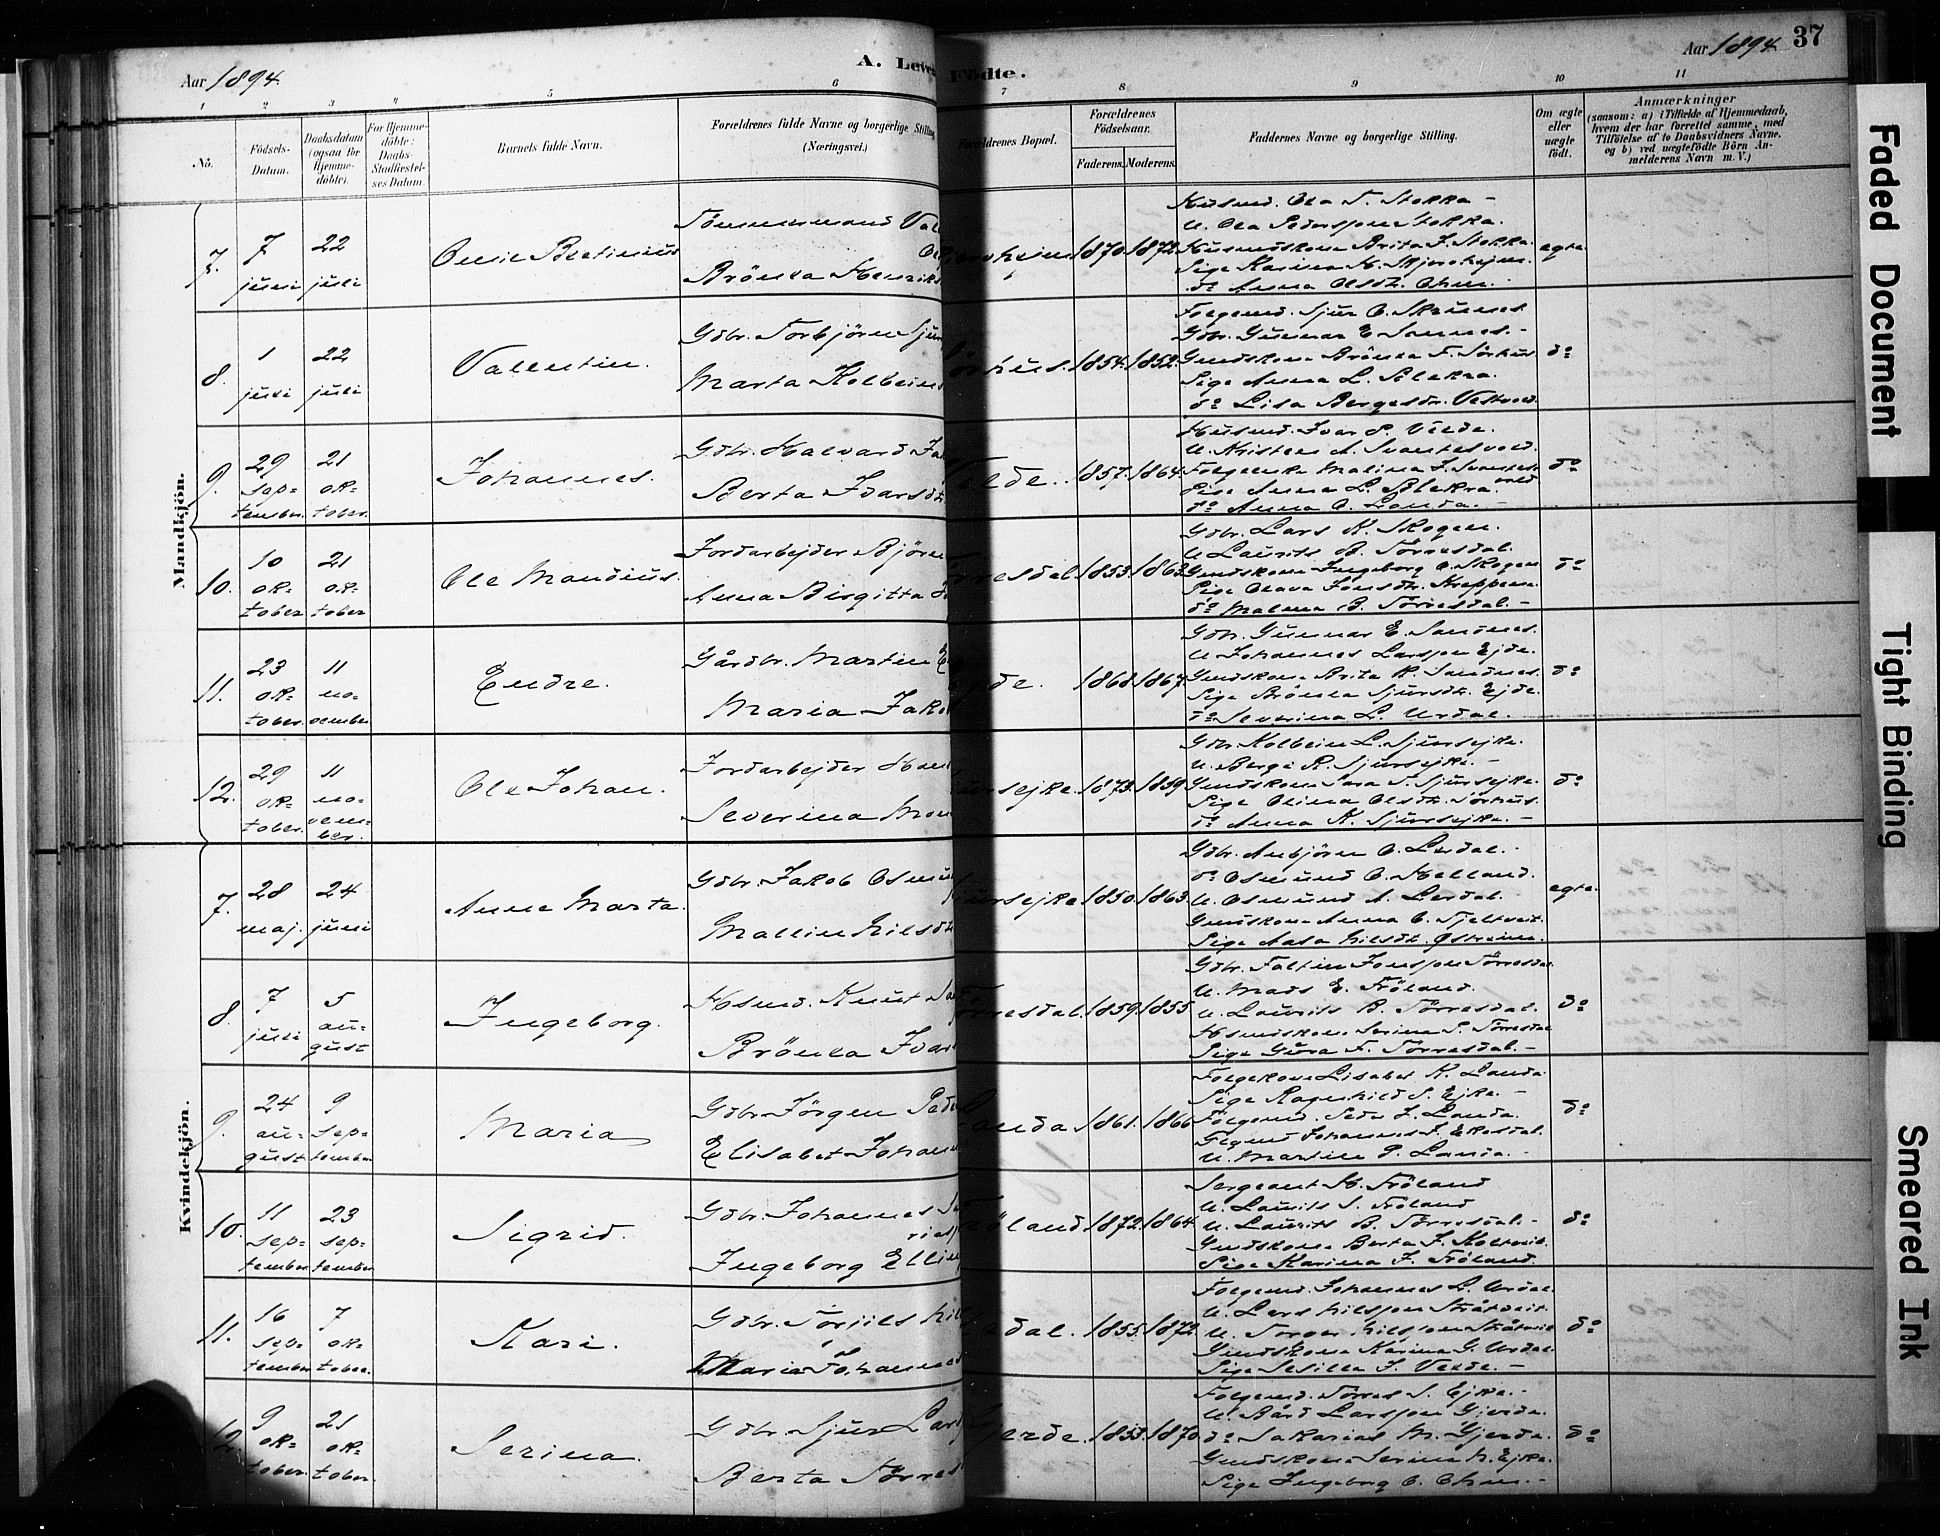 Aar 1894.
A. Leve
Födte.
Aar 1894. 37
1 2 3 4 5 6 7 8 9 10 11
No.
Födsels-
Datum.
Daabsdatum
(ogsaa for
Hjemme-
döbte).
For Hjemme-
döbte:
Daabs-
Stadfæstel-
ses Datum.
Barnets fulde Navn.
Forældrenes fulde Navne og borgerlige Stilling
(Næringsvei.)
Forældrenes Bopæl.
Forældrenes
Födselsaar.
Faderens. Moderens.
Faddernes Navne og borgerlige Stilling.
Om ægte
eller
uægte
födt.
Anmærkninger
(saasom: a) i Tilfælde af Hjemmedaab,
hvem der har forrettet samme, med
Tilföielse af to Daabsvidners Navne,
og b) ved uægtefödte Börn An-
melderens Navn m. V.)
Mandkjön.
7.
7
juni
22
juli
Tömmermand
Brönla Henriks
1870. 1872.
Husmd. Ola T. Stokka -
U. Ola Pedersson Stokka.
Husmdskone Brita J. Stokka.
Pige Karina H.
do Anna Olsdtr.
egte
8.
1
juli
22
juli
Valentin.
Gdbr. Torbjörn Sjur
Marta Kolbeins
1854. 1852.
Folgemd. Sjur O.
Gdbr. Gunnar E. Sandnes. -
Gmdskone Brönla T. Sörhus.
Pige Anna L.
do Lisa Bergesdr.
do
9.
29
sep-
tember
21
ok-
tober.
Johannes.
Gdbr. Halvard
Berta Ivarsdt
elde. 1857. 1864.
Husmd. Ivar P. Velde.
U. Kristen A.
Pige Anna L.
do Anna O. Landa. -
do
10.
10
ok-
tober
21
ok-
tober
Ole Mandius.
Jordarbejder Björn
Anna Birgitta
rresdal. 1853. 1863.
Gdbr. Lars K. Skogen.
U. Laurits B. Törresdal.
Gmdskone Ingeborg O. Skogen
Pige Olava Jonsdtr.
do Malena B. Törresdal. -
do
11.
23
ok-
tober.
11
no-
vember
Endre.
Gårdbr. Martin E
Maria Jako
de. 1868. 1867.
Gdbr. Gunnar E. Sandnes.
U. Johannes Larsson Ejde.
Gmdskone Brita R. Sandnes.
Pige Brönla Sjursdt. Ejde.
do Severina L. Urdal.
do
12.
29
ok-
tober.
11
no-
vem-
ber.
Ole Johan.
Jordarbejder Hans
Severina Mon
ursejke. 1873. 1859.
Gdbr. Kolbein L. Sjursejke.
U. Berge R. Sjursejke. -
Gmdskone Sara T. Sjursejke.
Pige Olina Olsdtr. Sörhus.
do Anna K. Sjursejke. -
do
Kvindekjön.
7.
28
maj.
24
juni
Anna Marta.
Gdbr. Jakob Osmun
Mallin Nilsdt
ursejke 1850. 1863.
Gdbr. Anbjörn O. Lerdal. -
do Osmund O. Helland.
U. Osmund A. Lerdal. -
Gmdskone Anna O.
Pige Aasa Nilsdt.
egte.
8.
7
juli
5
au-
gust
Ingeborg.
Hsmd. Knut
Brönla Ivar
Törresdal. 1859. 1855.
Gdbr. Faltin Jonsson Törresdal.
U. Mads E. Fröland.
U. Laurits B. Törresdal. -
Hsmdskone Serina P. Törresdal
Pige Gura F. Törresdal. -
do
9.
24
au-
gust
9
sep-
tember
Maria
Gdbr. Jörgen Ped
Elisabet Johan
anda. 1861. 1866.
Folgekone Lisabet K. Landa.
Pige Ragnhild S. Ejke. -
Folgemd. Peder J. Landa.
Folgmd Johannes J.
U. Martin P. Landa. -
do
10.
11
sep-
tember
23
sep-
tember
Sigrid.
Gdbr. Johannes
Ingeborg Elling
Fröland 1872. 1864.
Sergeant H. Fröland
U. Laurits S. Fröland
U. Laurits B. Törresdal. -
Gmdskone Berta J.
Pige Karina J. Fröland.
do
11.
16
sep-
tember
7
ok-
tober.
Kari.
Gdbr. Törjils Nil
Maria Johannes
dal. 1855. 1872.
Folgemd. Johannes L. Urdal.
U. Lars Nilsson Stråtveit.
U. Torger Nilsson Stråtveit
Gmdskone Karina G. Urdal
Pige Sesilla J. Velde. -
do
12.
9
ok-
tober
21
ok-
tober
Serina.
Gdbr. Sjur Lars
Berta Törres
Gjerde. 1853. 1870.
Folgemd. Törres S. Ejke. -
U. Bård Larsson Gjerde.
do Sakarias M. Gjerde.
Gmdskone Serina M. Ejke.
Pige Ingeborg O.
do
Faded Document
Tight Binding
Smeared Ink